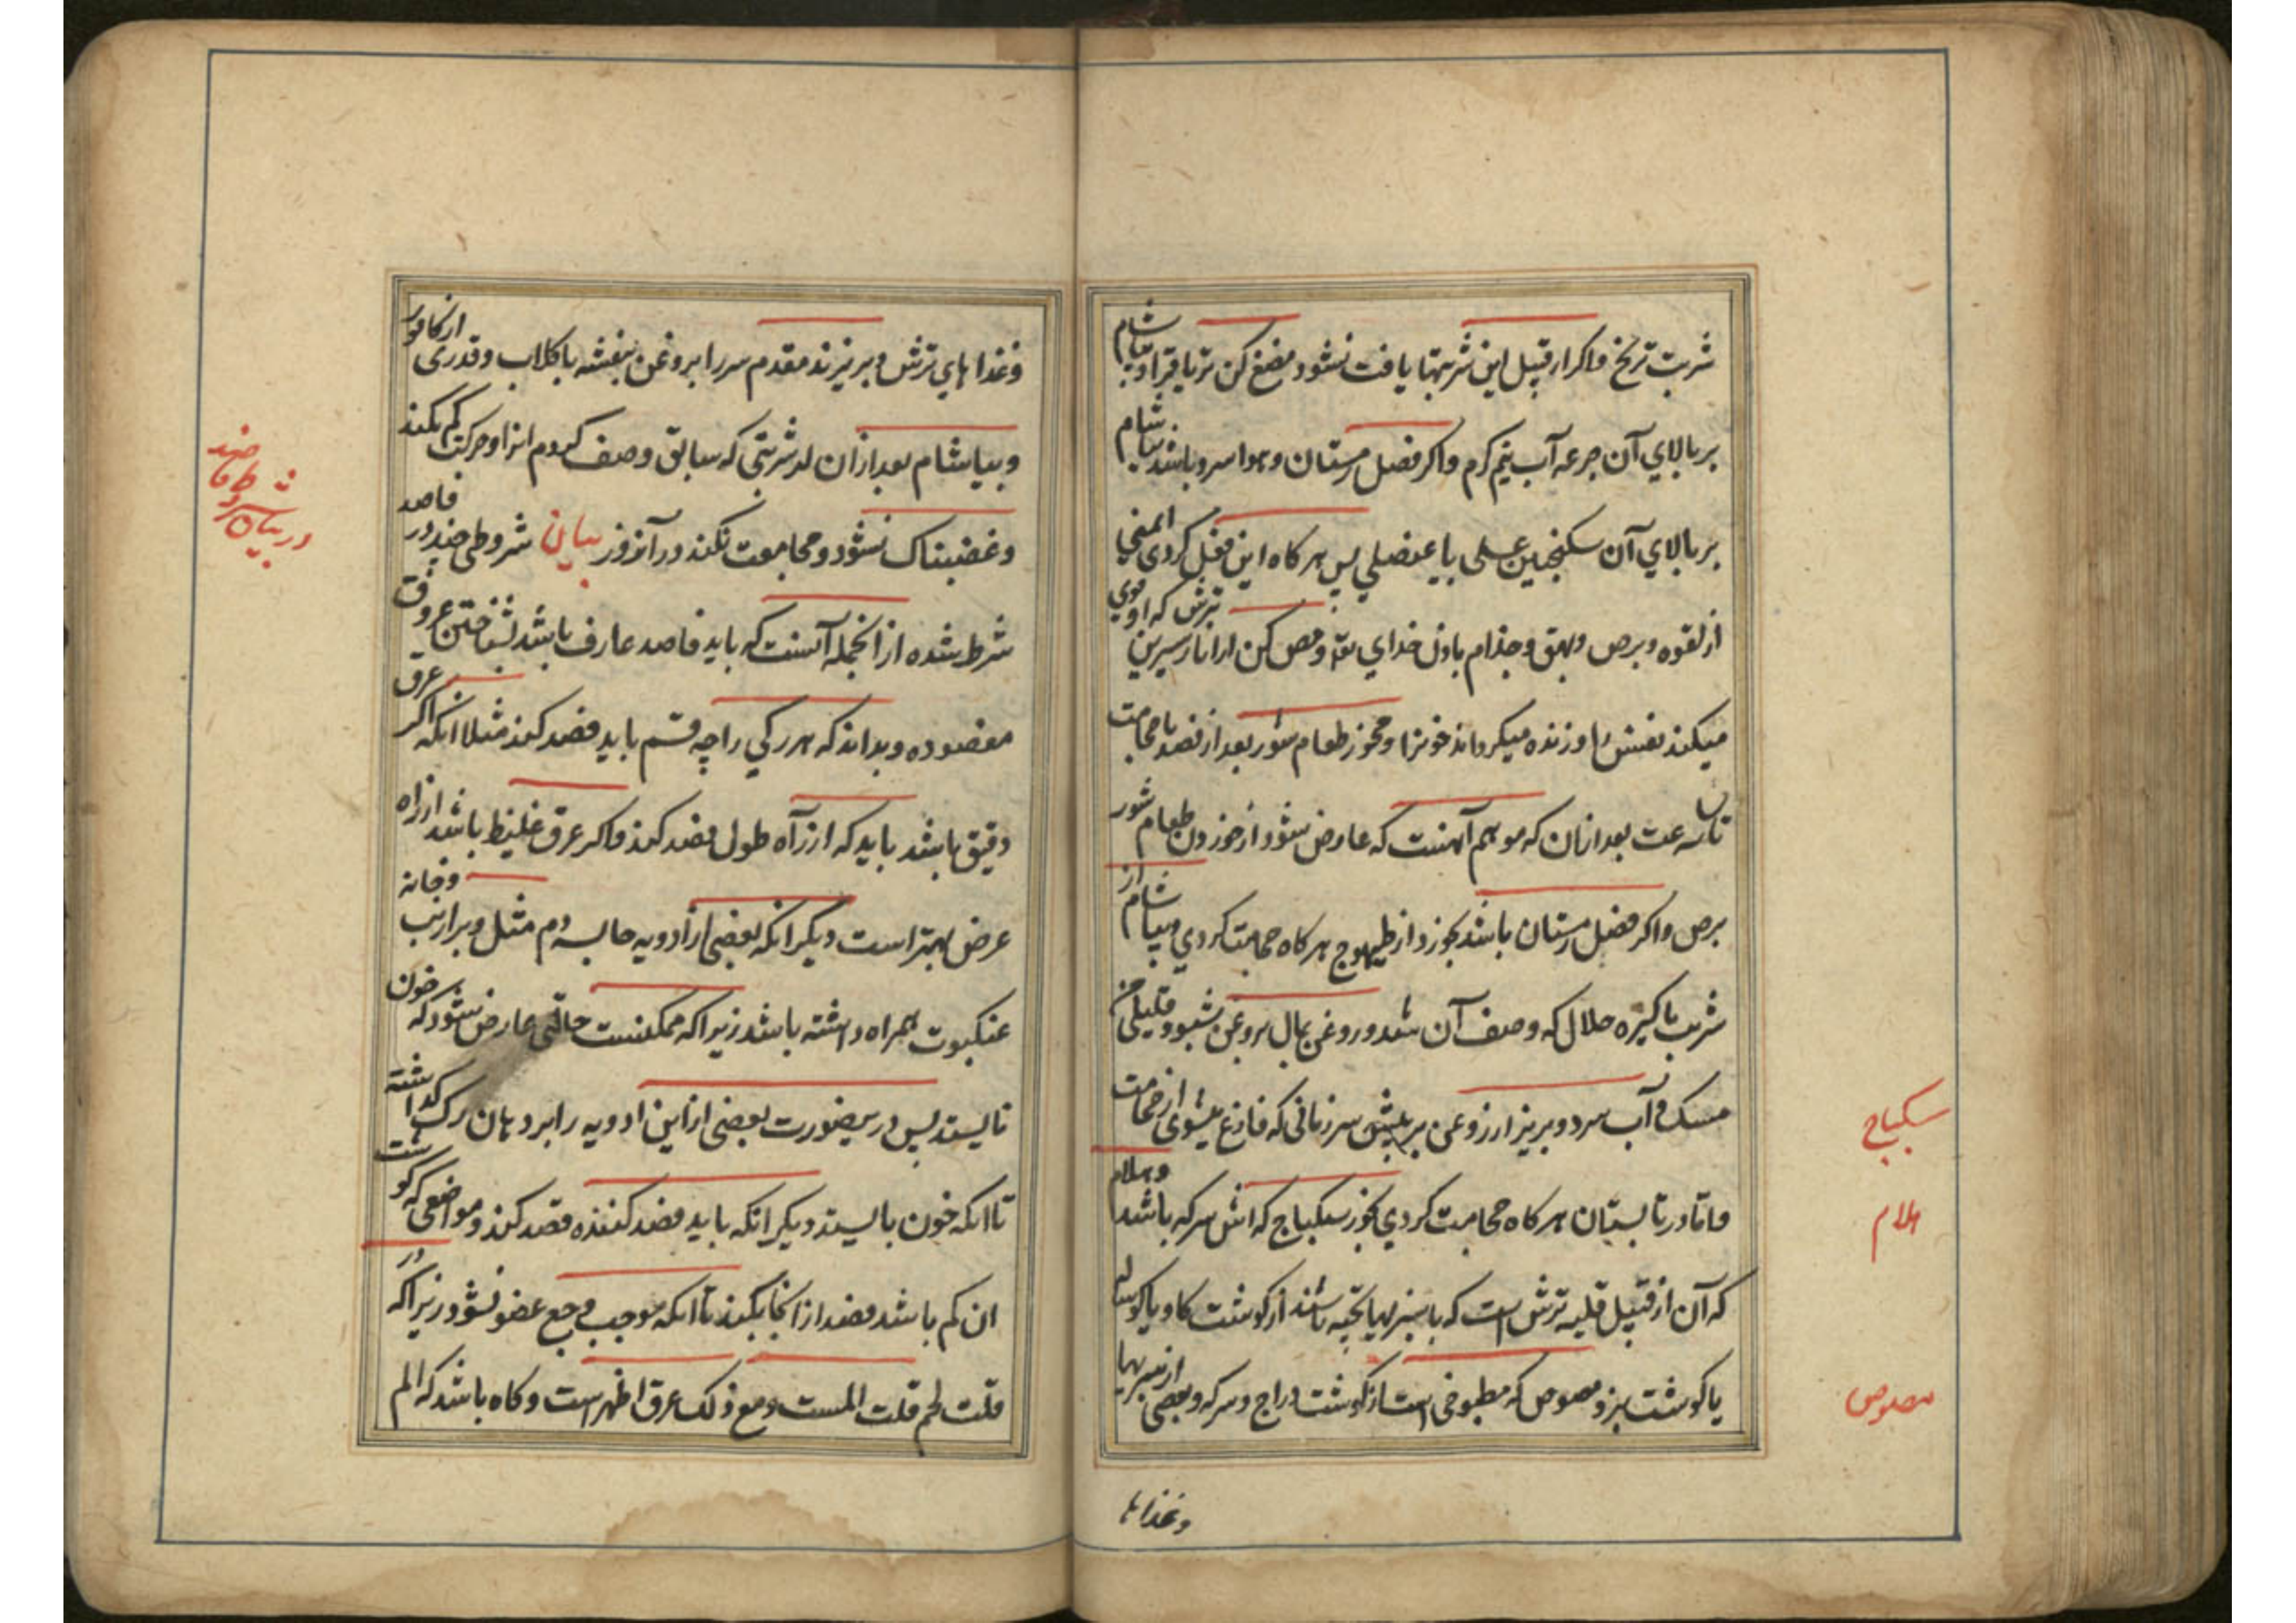 شربت ترنج واکر ازقبیل این شربتها یافت نشود مضغ کن تریاقرا و بیاشام
بربالاي آن جرعه آب نیم کرم واکر فصل زمستان و هوا سرد باشد بیاشام
بربالاي آن سکنجبین عسلی یا عنصلي پس هرکاه این فعل کردی ایمني
ازلقوه و برص وبهق وجذام باذن خداي تع و مص کن از انار شیرین
ترش که او قوي
میکند نفس را و زنده میکرداند خونرا ومخور طعام شور بعد از فصد یا حجامت
تا سه ساعت بعد ازان که موهم آنست که عارض شود از خوردن طعام شور
برص واکر فصل زمستان باشد بخور از طیهوج هرکاه حجامت کردي و بیاشام از
شربت پاکیزه حلال که وصف آن شد و روغن بمال بروغن شبو و قلیلی از
مسک و آب سرد و بریز ازروغن بر پیش سر زمانی که فارغ شوی از حجامت
واما درتابستان هرکاه حجامت کردي بخور سکباج که آش سرکه باشد وهلام
که آن ازقبیل قلیه ترش است که با سبزیها پخته باشند از کوشت کاو یا کوساله
یا کوشت بز و مصوص که مطبوخی است از کوشت دراج و سرکه وبعضی از سبزیها
وغذاها
سکباج
هلام
مصوص
وغذا هاي ترش وبریزند مقدم سر را بروغن بنفشه با کلاب وقدری از کافور
وبیاشام بعد ازان از شربتی که سابق وصف کردم انرا و حرکت کم بکند
وغضبناک نشود و مجامعت نکند در آنروز بیان شروطی چند در فاصد
شرط شده از انجمله آنست که باید فاصد عارف باشد بشناختن عروق
مفصوده وبداند که هر رکي را چه قسم باید فصد کند مثلا انکه اکر عرق
دقیق باشد باید که از راه طول فصد کند واکر عرق غلیظ باشد از راه
عرض بهتر است دیکر انکه بعضی از ادویه حابسه دم مثل وبر ارنب وخانه
عنکبوت همراه داشته باشد زیرا که ممکنست حالتی عارض شود که خون
نایستد پس درینصورت بعضی از این ادویه را بر دهان رک کذاشته
تا انکه خون بایستد دیکر انکه باید فصد کننده قصد کند مواضعی که کوشت
ان کم باشد فصد از انجا بکند تا انکه موجب وجع عضو نشود زیرا که در
قلت لحم قلت المست ومع ذلک عرق اظهر است وکاه باشد که الم
در بیان شروط فاصد